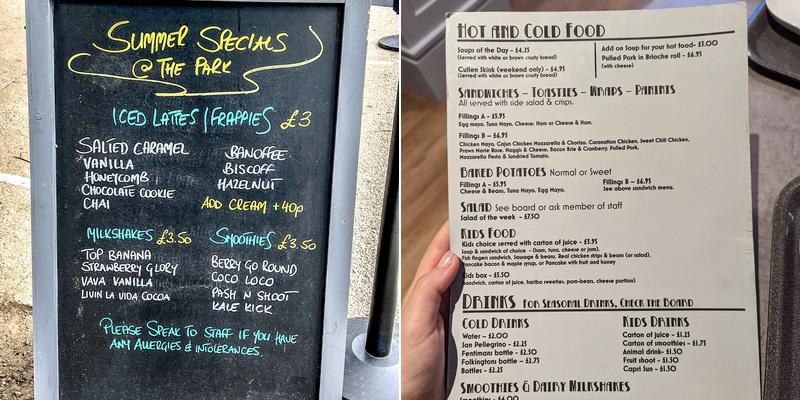 SUMMER SPECIALS
@ THE PARK
ICED LATTES / FRAPPIES £3
SALTED CARAMEL
VANILLA
HONEYCOMB
CHOCOLATE COOKIE
CHAI
BANOFFEE
BISCOFF
HAZELNUT
ADD CREAM +40p
MILKSHAKES £3.50
TOP BANANA
STRAWBERRY GLORY
VAVA VANILLA
LIVIN LA VIDA COCOA
SMOOTHIES £3.50
BERRY GO ROUND
COCO LOCO
PASH N SHOOT
KALE KICK
PLEASE SPEAK TO STAFF IF YOU HAVE
ANY ALLERGIES & INTOLERANCES.
HOT AND COLD FOOD
Soups of the Day - £4.25
(Served with white or brown crusty bread)
Cullen Skink (weekend only) - £4.95
(Served with white or brown crusty bread)
Add on Soup for your hot food- £3.00
Pulled Pork in Brioche roll - £6.95
(with cheese)
SANDWICHES - TOASTIES - WRAPS - PANINIS
All served with side salad & crisps.
Fillings A - £5.95
Egg mayo, Tuna Mayo, Cheese, Ham or Cheese & Ham.
Fillings B - £6.95
Chicken Mayo, Cajun Chicken Mozzarella & Chorizo, Coronation Chicken, Sweet Chili Chicken,
Prawn Marie Rose, Haggis & Cheese, Bacon Brie & Cranberry, Pulled Pork,
Mozzarella Pesto & Sundried Tomato.
BAKED POTATOES Normal or Sweet
Fillings A - £5.95
Cheese & Beans, Tuna Mayo, Egg Mayo.
Fillings B - £6.95
See above sandwich menu.
SALAD See board or ask member of staff
Salad of the week - £7.50
KIDS FOOD
Kids choice served with carton of juice - £3.95
Soup & sandwich of choice - (ham, tuna, cheese or jam),
Fish fingers sandwich, Sausage & beans, Real chicken strips & beans (or salad),
Pancake bacon & maple syrup, or Pancake with fruit and honey
Kids box - £5.50
Sandwich, carton of juice, haribo sweeties, pom-bear, cheese portion)
DRINKS FOR SEASONAL DRINKS, CHECK THE BOARD
COLD DRINKS
Water - £2.00
San Pellegrino - £2.25
Fentimans bottle - £2.50
Folkingtons bottle - £2.75
Bottles - £2.25
KIDS DRINKS
Carton of juice - £1.25
Carton of smoothies - £1.75
Animal drink- £1.50
Fruit shoot - £1.50
Capri Sun - £1.50
SMOOTHIES & DAIRY MILKSHAKES